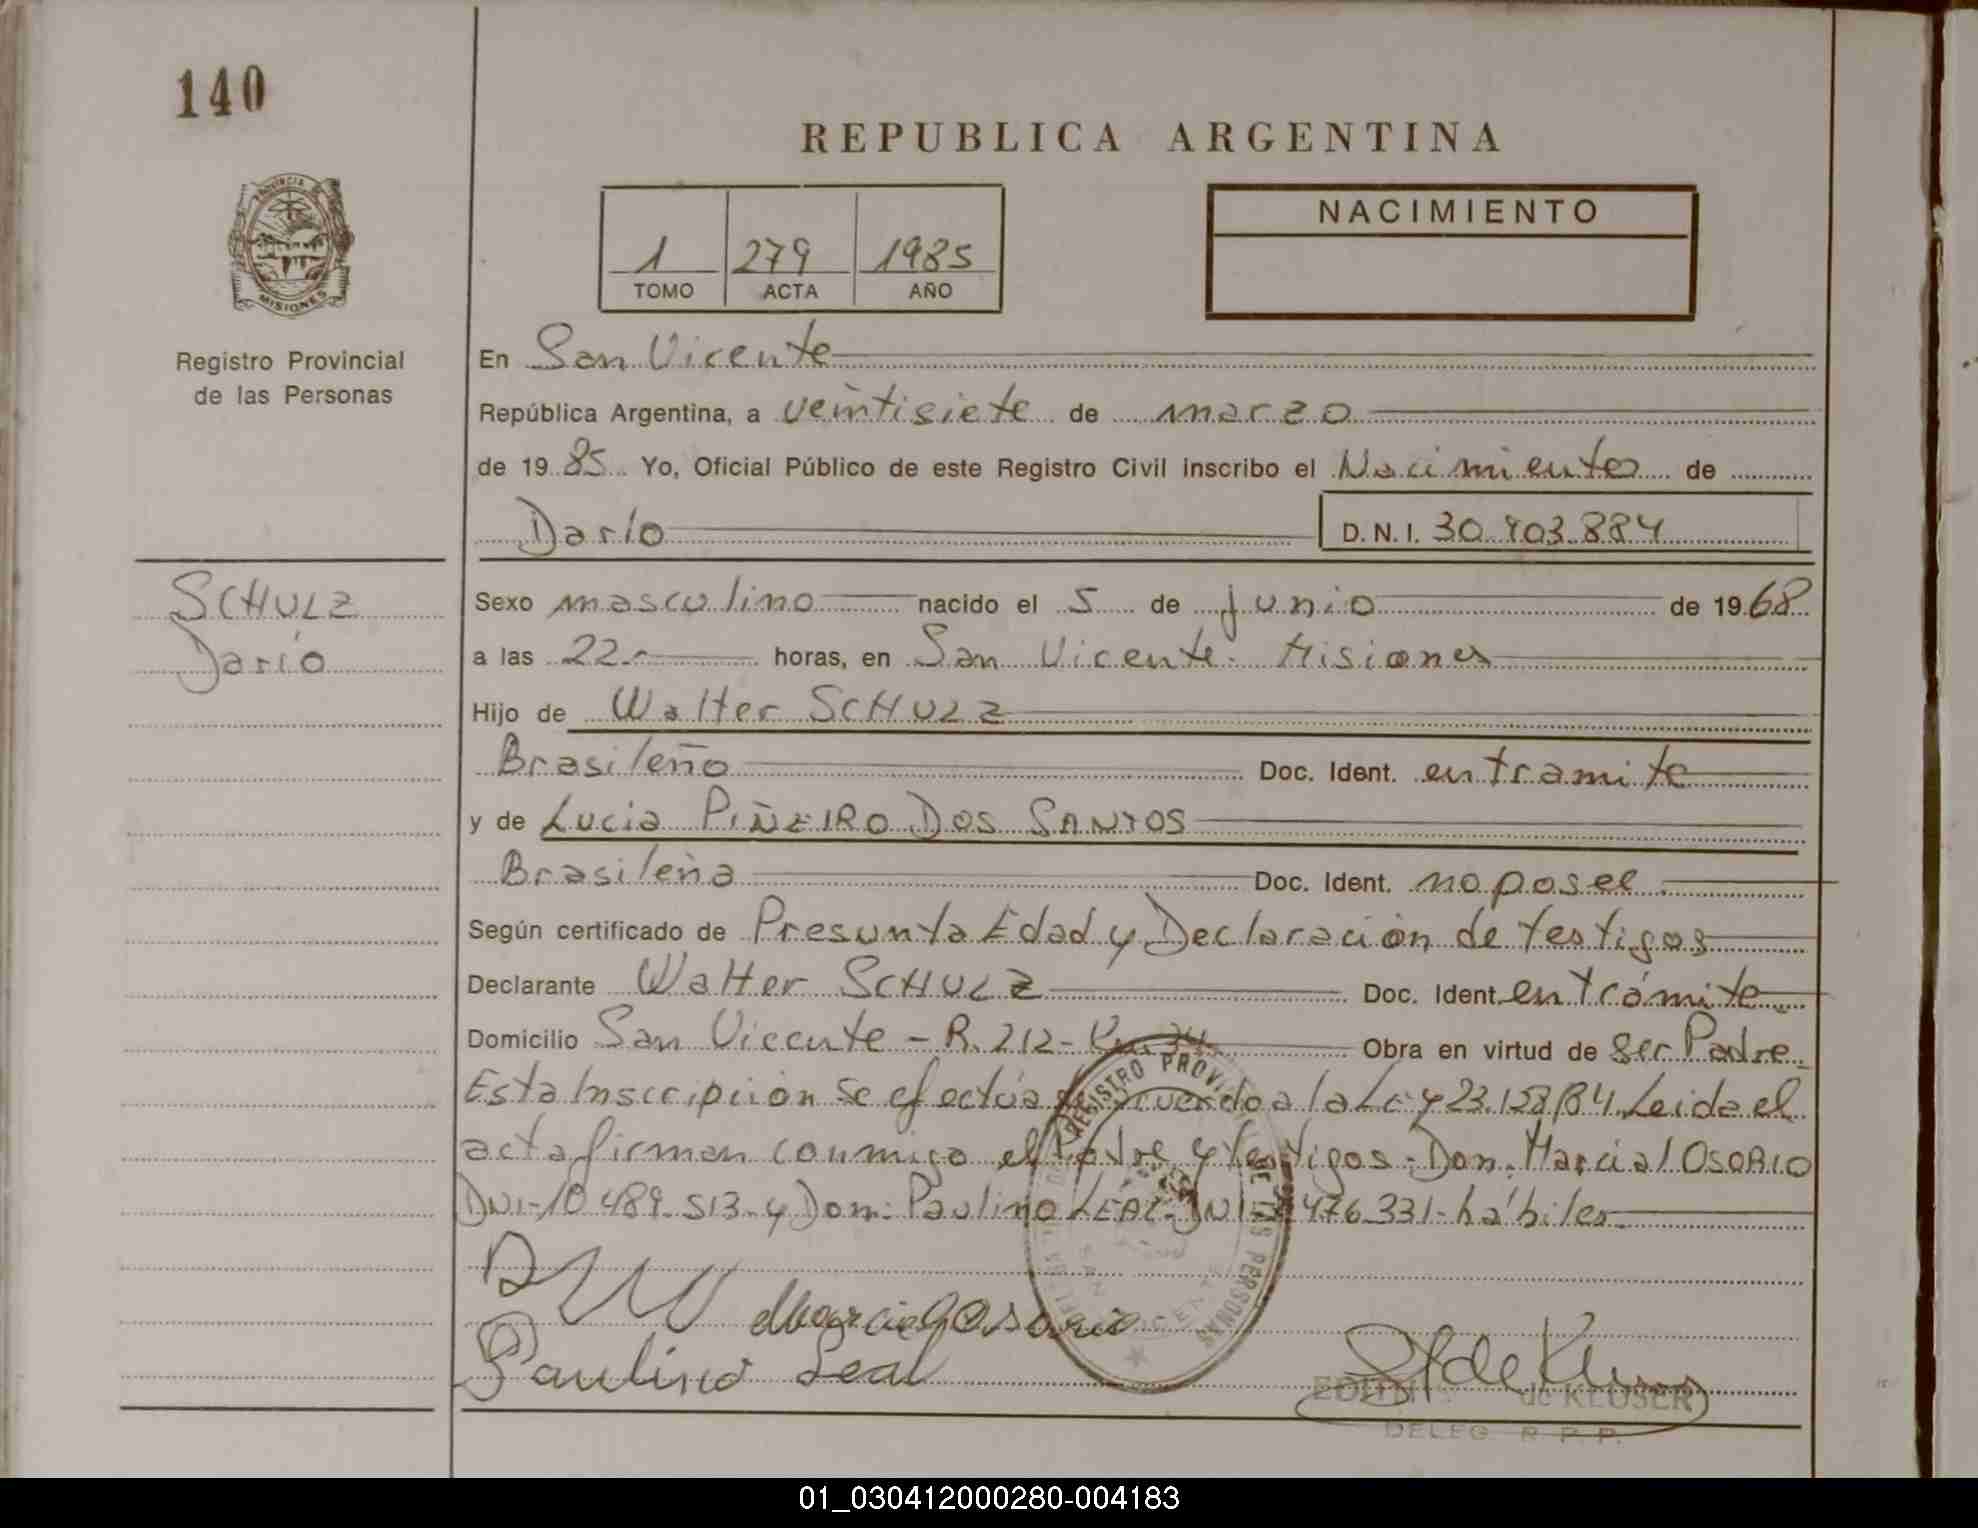 140
REPUBLICA ARGENTINA
NACIMIENTO
1 279 1985
TOMO ACTA AÑO
PROVINCIA DE
MISIONES
Registro Provincial
de las Personas
En San Vicente
República Argentina, a veintisiete de marzo
de 1985 Yo, Oficial Público de este Registro Civil inscribo el Nacimiento de
Darío
D.N.I. 30.903.884
SCHULZ
Darío
Sexo masculino nacido el 5 de junio de 1968
a las 22.- horas, en San Vicente. Misiones
Hijo de Walter SCHULZ
Brasileño Doc. Ident. en tramite
y de Lucia PIÑEIRO DOS SANTOS
Brasileña Doc. Ident. no posee.
Según certificado de Presunta Edad y Declaración de testigos
Declarante Walter SCHULZ Doc. Ident. en trámite
Domicilio San Vicente - R. 212 - Km. 34 Obra en virtud de ser Padre.
Esta Inscripción se efectúa de acuerdo a la Ley 23.128/84. Leida el
acta firman conmigo el Padre y testigos: Don. Marcial OSORIO
DNI-10.489.513-y Don: Paulino LEAL-DNI 476.331-hábiles.
REGISTRO PROVINCIAL DE LAS PERSONAS
SAN VICENTE
Marcial Osorio
Paulino Leal
de KEUSER
DELEG R.P.P.
01_030412000280-004183